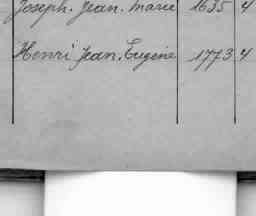 Joseph. Jean. Marie 1635 4
Henri Jean. Eugène 1773 4